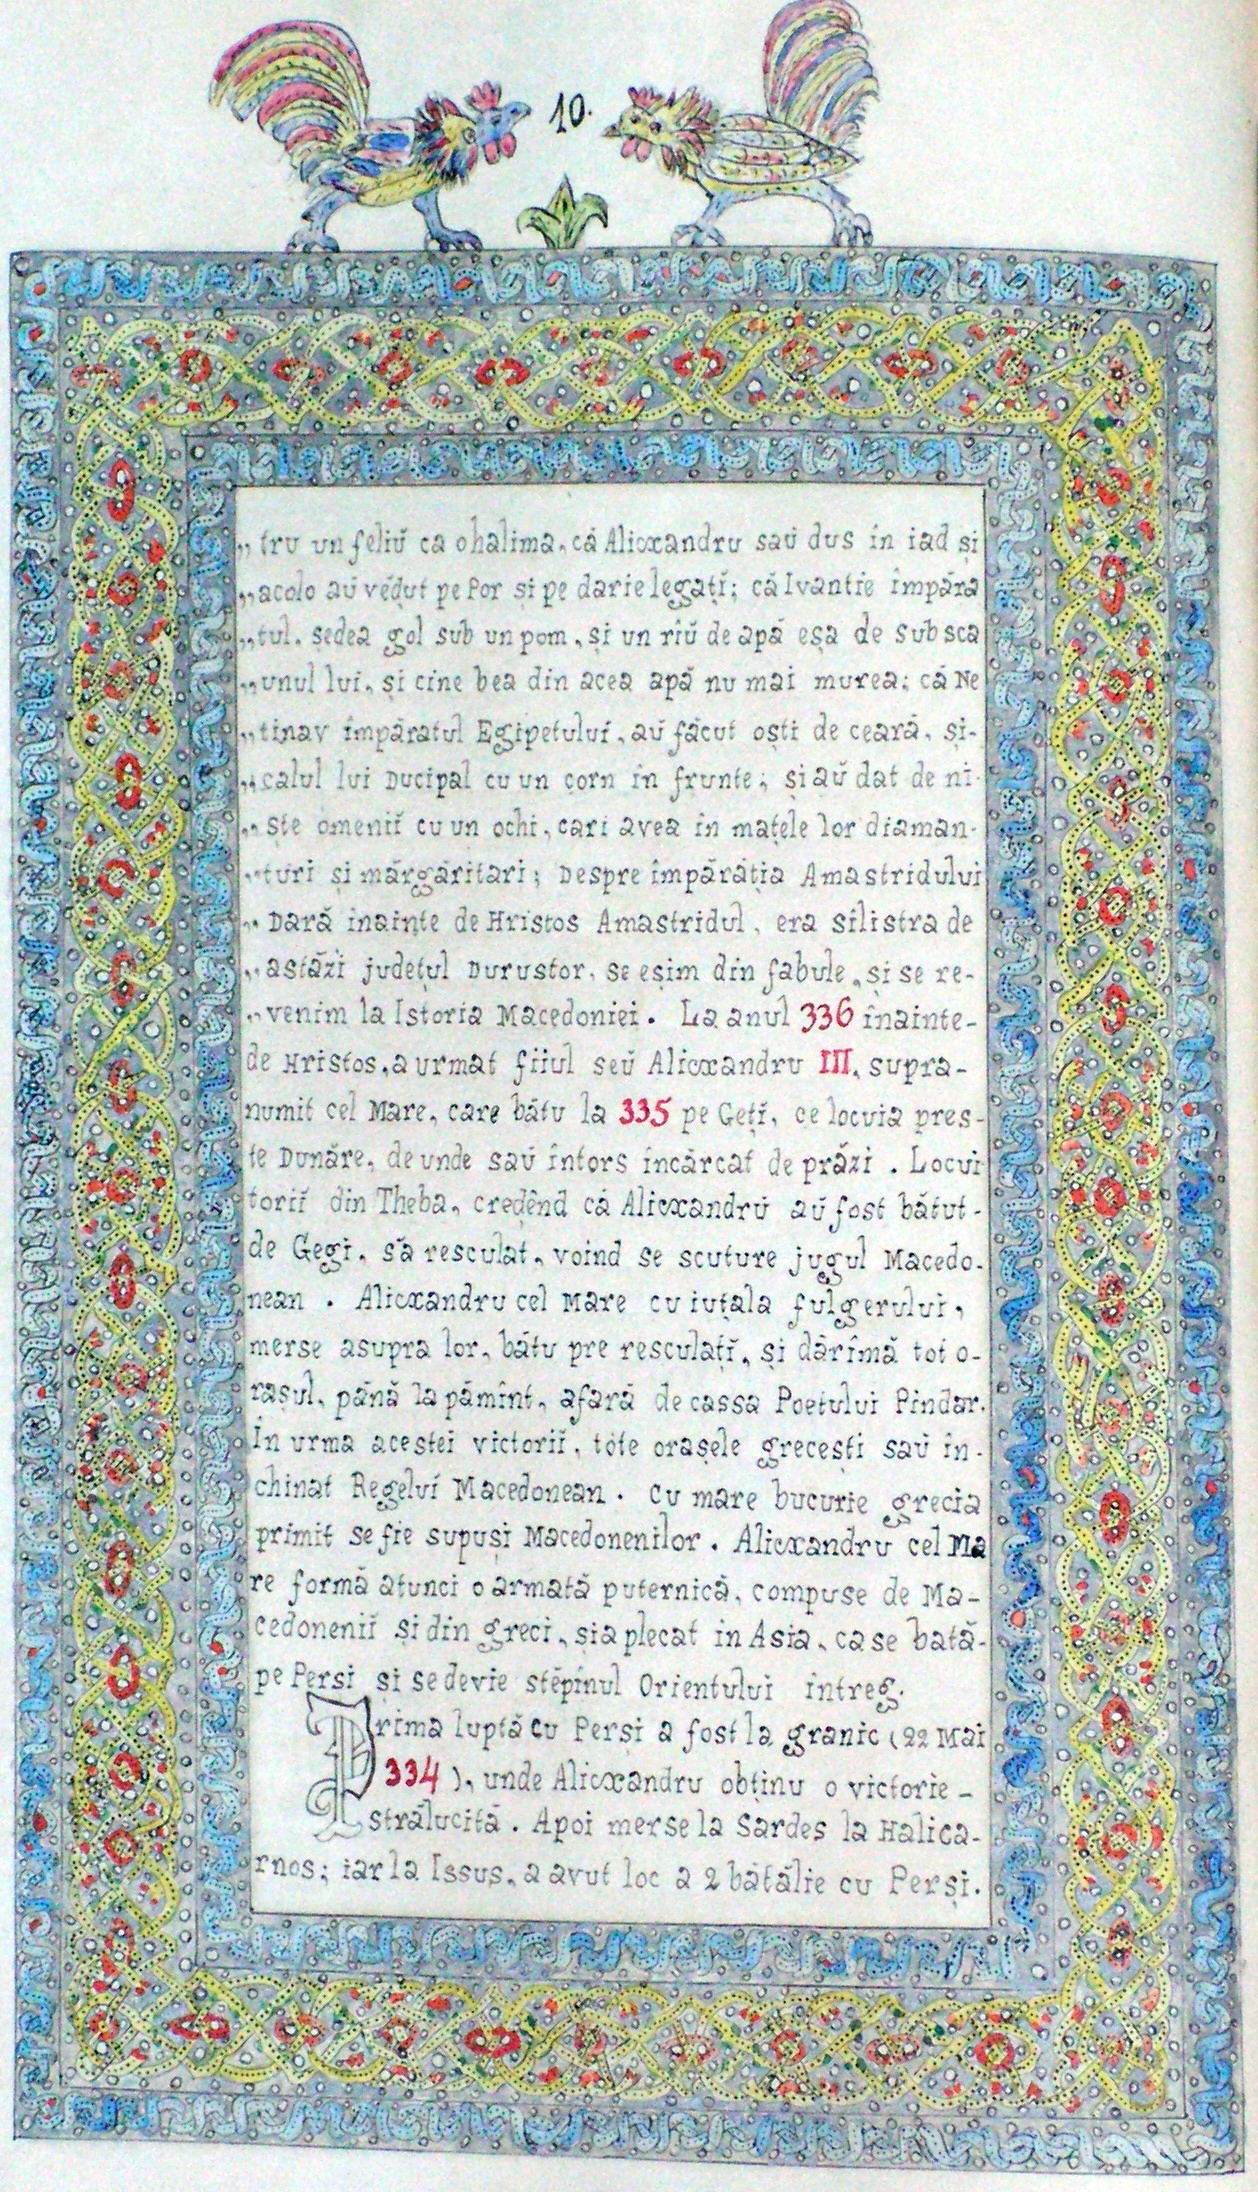 10.
„ tru un feliŭ ca ohalima, că Alicxandru saŭ dus în iad și
„ acolo aŭ vĕdut pe Por și pe darie legațĭ; că Ivantie împăra
„ tul. sedea gol sub un pom, și un rîŭ de apă eșa de sub sca
„ unul lui, și cine bea din acea apă nu mai murea; că Ne
„ tinav împăratul Egipetului, aŭ făcut oști de ceară, și-
„ calul lui Ducipal cu un corn în frunte; și aŭ dat de ni-
„ ște omeniĭ cu un ochi, cari avea în mațele lor diaman-
„ turi și mărgăritari; Despre împărăția Amastridului
„ Dară inainte de Hristos Amastridul, era silistra de
„ astăzi județul Durustor, se eșim din fabule, și se re-
„ venim la Istoria Macedoniei. La anul 336 înainte-
de Hristos, a urmat fiiul seŭ Alicxandru III, supra-
numit cel Mare, care bătu la 335 pe Gețĭ, ce locuia pres-
te Dunăre, de unde saŭ întors încărcat de prăzi. Locui
toriĭ din Theba, credênd că Alicxandru aŭ fost bătut-
de Gegi, s'a resculat, voind se scuture jugul Macedo-
nean. Alicxandru cel Mare cu iuțala fulgerului,
merse asupra lor, bătu pre resculațĭ, și dărîmă tot o-
rașul, până la pămînt, afară de cassa Poetului Pindar.
În urma acestei victoriĭ, tóte orașele grecești saŭ în-
chinat Regeluí Macedonean. Cu mare bucurie grecia
primit se fie supuși Macedonenilor. Alicxandru cel Ma
re formă atunci o armată puternică, compuse de Ma-
cedoneniĭ și din greci, și a plecat in Asia, ca se bată-
pe Persi și se devie stĕpînul Orientului întreg.
Prima luptă cu Perși a fost la granic (22 Mai
334), unde Alicxandru obținu o victorie-
strălucită. Apoi merse la Sardes la Halica-
rnos; iar la Issus, a avut loc a 2 bătălie cu Perși.